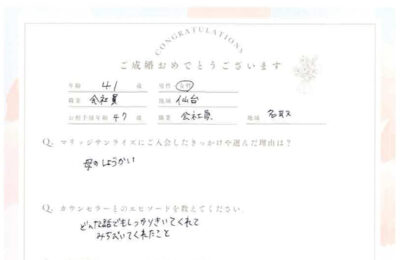 CONGRATULATIONS
ご成婚おめでとうございます
年齢 41 歳 男性 女性
職業 会社員 地域 仙台
お相手様年齢 47 歳 職業 会社員 地域
Q. マリッジサンライズにご入会したきっかけや選んだ理由は?
母のしょうかい
Q. カウンセラーとのエピソードを教えてください。
どんな話でもしっかりきいてくれて
みちびいてくれたこと